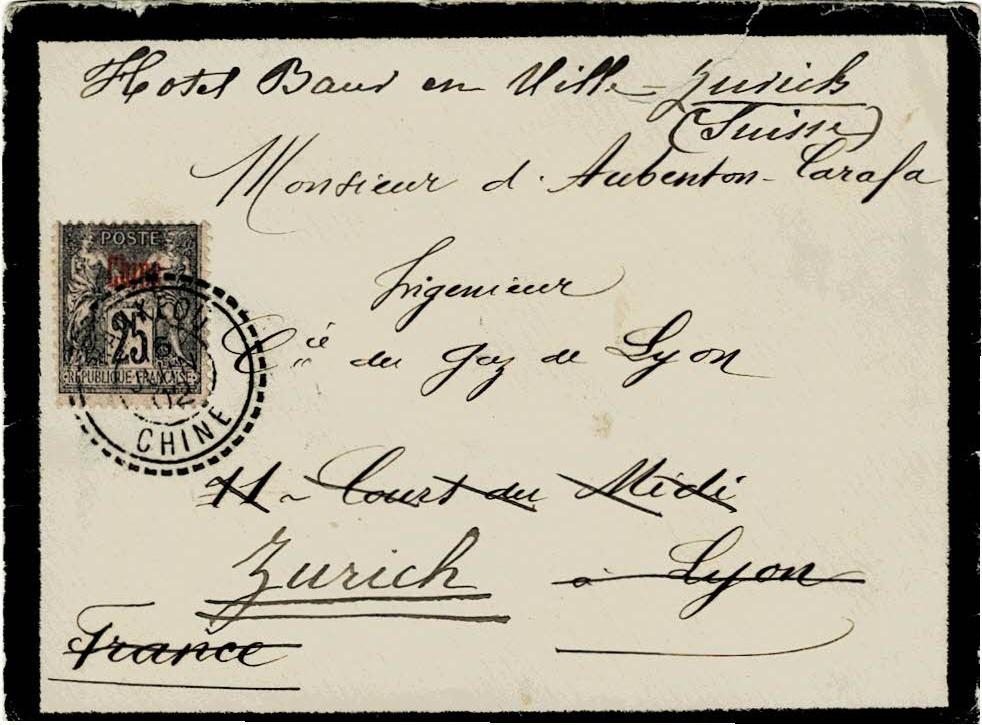 Hotel Baur en Ville - Zurich
(Suisse)
Monsieur d'Aubenton-Carafa
Ingenieur
Cie du Gaz de Lyon
11 - Court du Midi
Zurich à Lyon
France
POSTE
Chine
25
REPUBLIQUE FRANÇAISE
02
CHINE